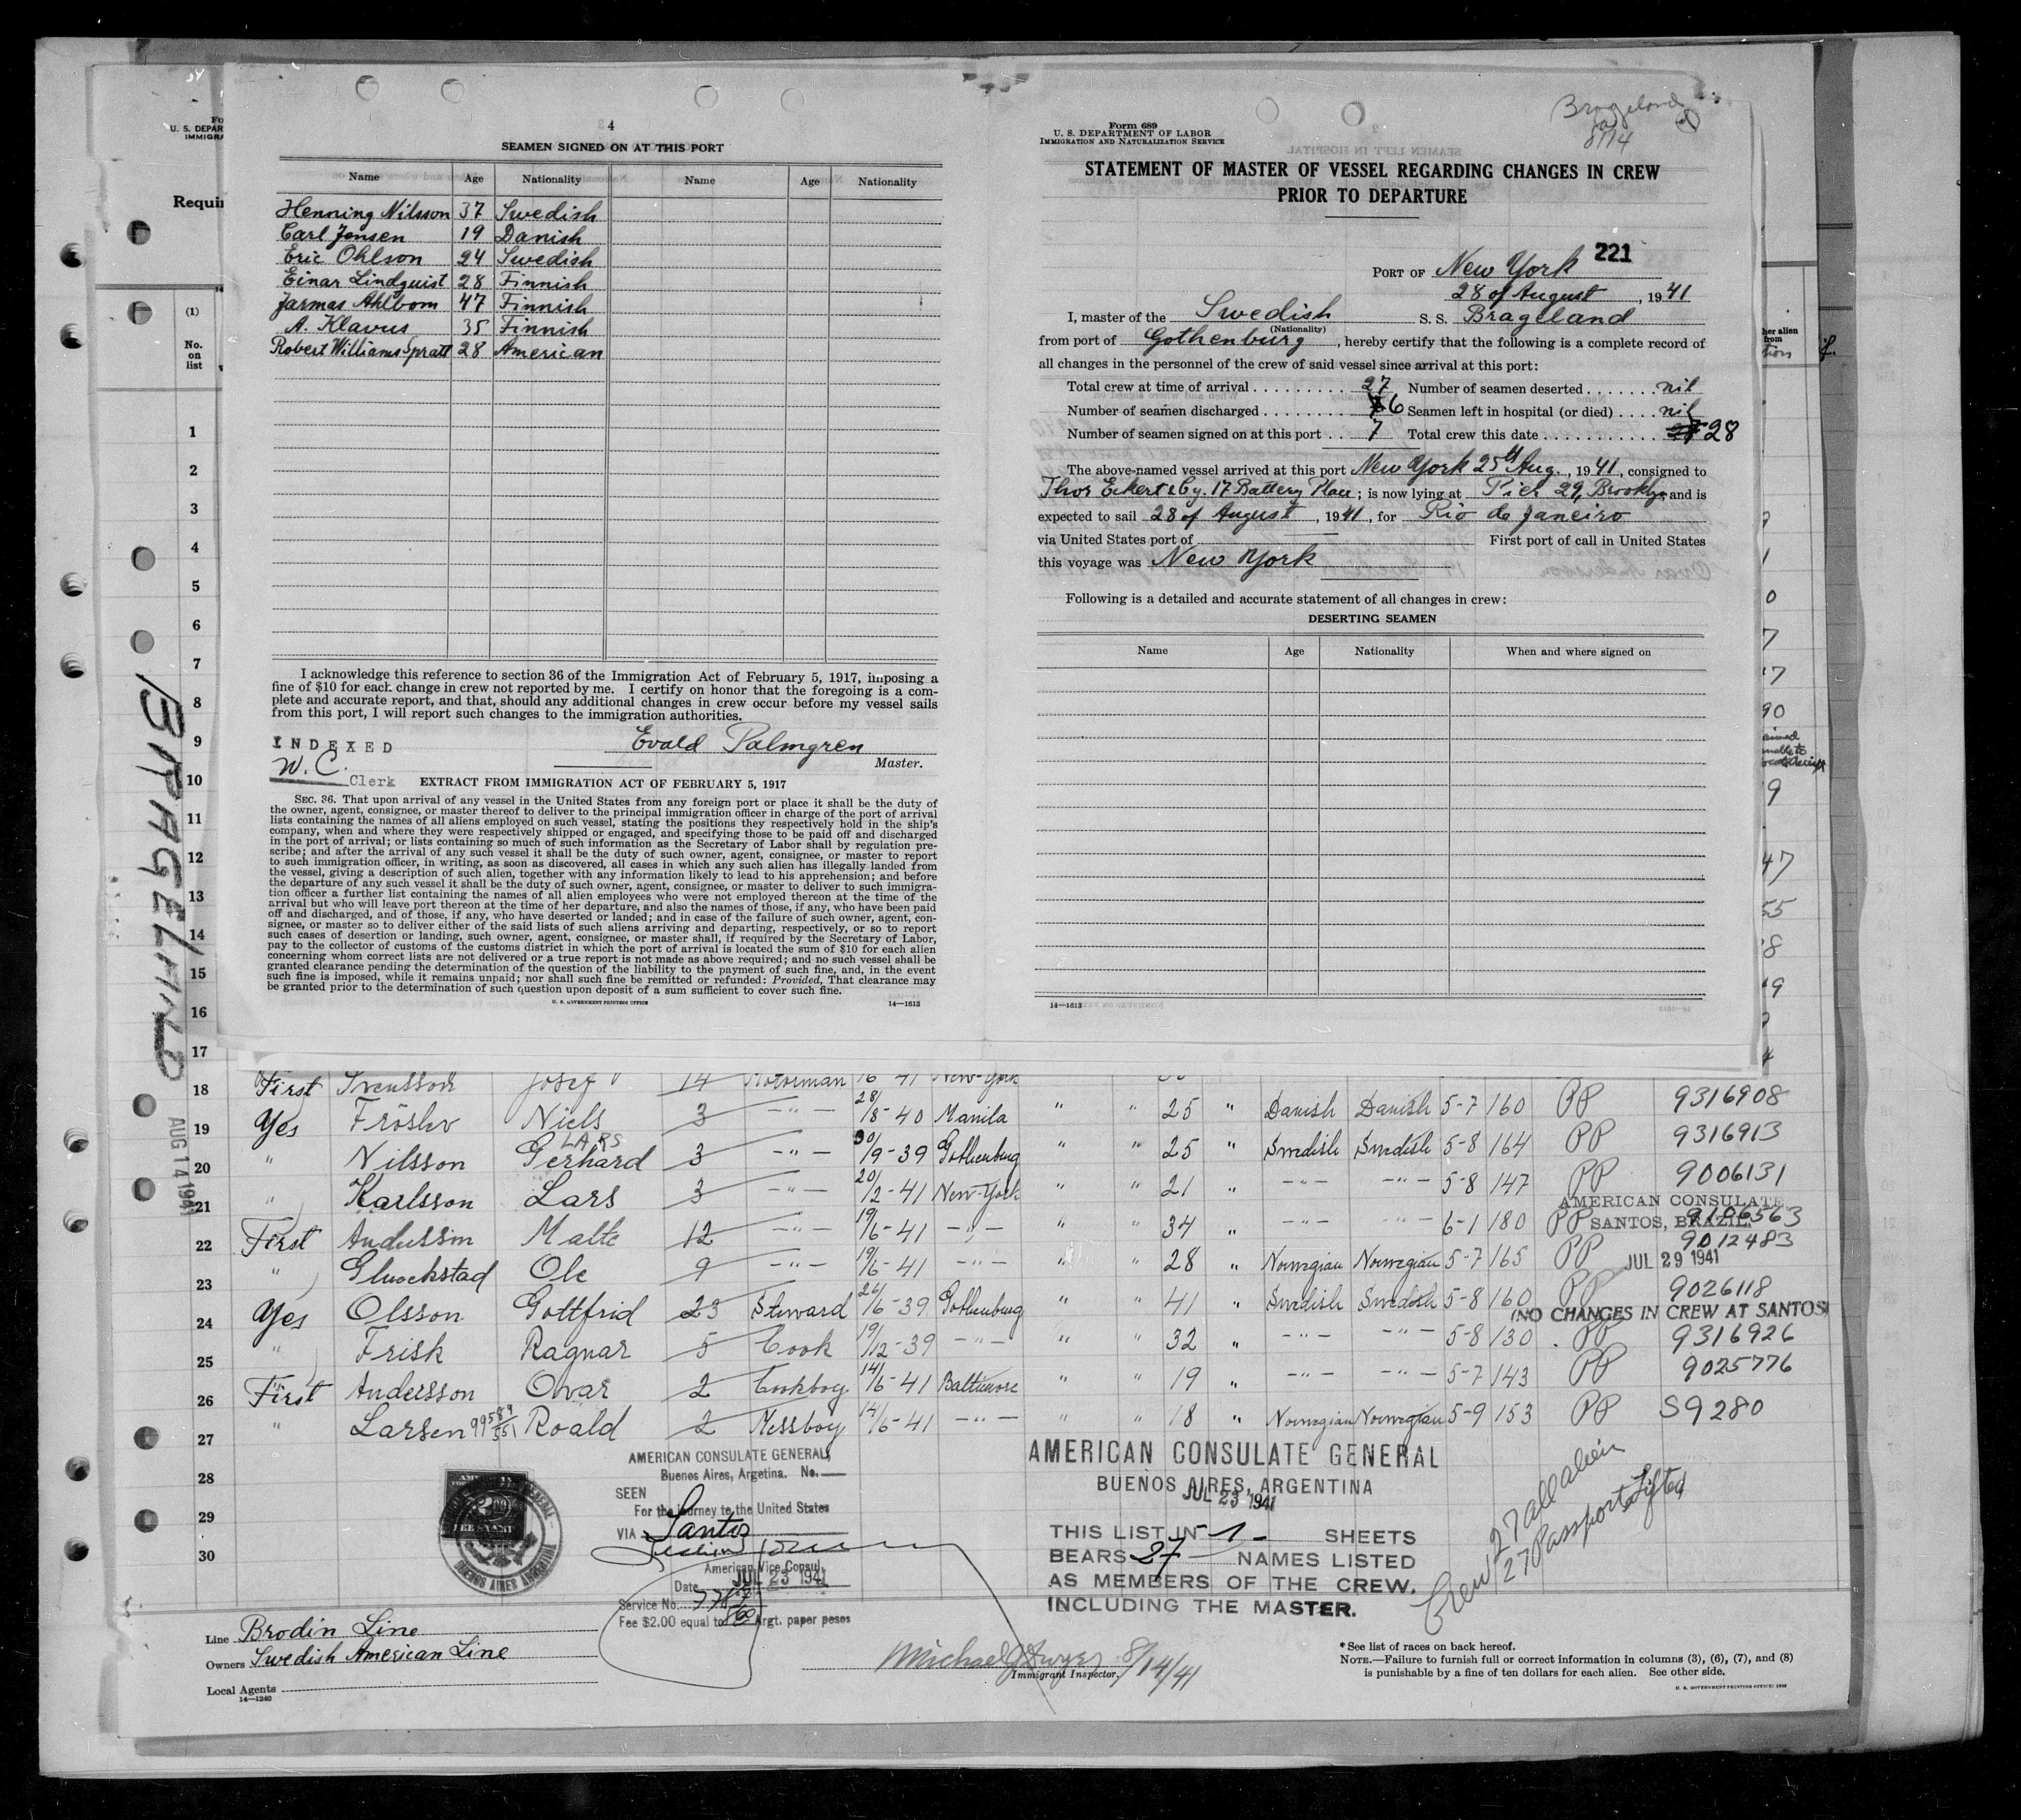 4
SEAMEN SIGNED ON AT THIS PORT
Name Age Nationality Name Age Nationality
Henning Nilsson 37 Swedish
Carl Jensen 19 Danish
Eric Ohlson 24 Swedish
Einar Lindquist 28 Finnish
Jarmas Ahlbom 47 Finnish
A. Klavus 35 Finnish
Robert Williams Spratt 28 American
I acknowledge this reference to section 36 of the Immigration Act of February 5, 1917, imposing a
fine of $10 for each change in crew not reported by me. I certify on honor that the foregoing is a com-
plete and accurate report, and that, should any additional changes in crew occur before my vessel sails
from this port, I will report such changes to the immigration authorities.
INDEXED
Evald Palmgren
W. C. Clerk
Master.
EXTRACT FROM IMMIGRATION ACT OF FEBRUARY 5, 1917
SEC. 36. That upon arrival of any vessel in the United States from any foreign port or place it shall be the duty of
the owner, agent, consignee, or master thereof to deliver to the principal immigration officer in charge of the port of arrival
lists containing the names of all aliens employed on such vessel, stating the positions they respectively hold in the ship's
company, when and where they were respectively shipped or engaged, and specifying those to be paid off and discharged
in the port of arrival; or lists containing so much of such information as the Secretary of Labor shall by regulation pre-
scribe; and after the arrival of any such vessel it shall be the duty of such owner, agent, consignee, or master to report
to such immigration officer, in writing, as soon as discovered, all cases in which any such alien has illegally landed from
the vessel, giving a description of such alien, together with any information likely to lead to his apprehension; and before
the departure of any such vessel it shall be the duty of such owner, agent, consignee, or master to deliver to such immigra-
tion officer a further list containing the names of all alien employees who were not employed thereon at the time of the
arrival but who will leave port thereon at the time of her departure, and also the names of those, if any, who have been paid
off and discharged, and of those, if any, who have deserted or landed; and in case of the failure of such owner, agent, con-
signee, or master so to deliver either of the said lists of such aliens arriving and departing, respectively, or so to report
such cases of desertion or landing, such owner, agent, consignee, or master shall, if required by the Secretary of Labor,
pay to the collector of customs of the customs district in which the port of arrival is located the sum of $10 for each alien
concerning whom correct lists are not delivered or a true report is not made as above required; and no such vessel shall be
granted clearance pending the determination of the question of the liability to the payment of such fine, and, in the event
such fine is imposed, while it remains unpaid; nor shall such fine be remitted or refunded: Provided, That clearance may
be granted prior to the determination of such question upon deposit of a sum sufficient to cover such fine.
U. S. GOVERNMENT PRINTING OFFICE 14—1613
Brageland
8/14
Form 689
U. S. DEPARTMENT OF LABOR
IMMIGRATION AND NATURALIZATION SERVICE
STATEMENT OF MASTER OF VESSEL REGARDING CHANGES IN CREW
PRIOR TO DEPARTURE
221
PORT OF New York
28 of August, 1941
I, master of the Swedish S. S. Brageland
(Nationality)
from port of Gothenburg, hereby certify that the following is a complete record of
all changes in the personnel of the crew of said vessel since arrival at this port:
Total crew at time of arrival 27 Number of seamen deserted nil
Number of seamen discharged 6 Seamen left in hospital (or died) nil
Number of seamen signed on at this port 7 Total crew this date 28
The above-named vessel arrived at this port New York 25th Aug., 1941, consigned to
Thor Eckert & Cy. 17 Battery Place; is now lying at Pier 29, Brooklyn and is
expected to sail 28 of August, 1941, for Rio de Janeiro
via United States port of First port of call in United States
this voyage was New York
Following is a detailed and accurate statement of all changes in crew:
DESERTING SEAMEN
Name Age Nationality When and where signed on
14—1613
U. S. DEPAR
IMMIGRA
Requir
(1)
No.
on
list
1
2
3
4
5
6
7
8
9
10
11
12
13
14
15
16
17
BRAGELAND
AUG 14 1941
18 First Svensson Josef 14 Motorman 16 41 New-York
19 Yes Fröslev Niels 3 -"- 28/8-40 Manila " " 25 " Danish Danish 5-7 160 PP 9316908
LARS
20 " Nilsson Gerhard 3 -"- 30/9-39 Gothenburg " " 25 " Swedish Swedish 5-8 164 PP 9316913
21 " Karlsson Lars 3 -"- 20/2-41 New-York " " 21 " -"- -"- 5-8 147 PP 9006131
22 First Andersson Malte 12 -"- 19/6-41 -"- " " 34 " -"- -"- 6-1 180 PP 9106563
23 " Gluckstad Ole 9 -"- 19/6-41 -"- " " 28 " Norwegian Norwegian 5-7 165 PP 9012483
24 Yes Olsson Gottfrid 23 Steward 26/6-39 Gothenburg " " 41 " Swedish Swedish 5-8 160 PP 9026118
25 " Frisk Ragnar 5 Cook 19/12-39 -"- " " 32 " -"- -"- 5-8 130 PP 9316926
26 First Andersson Ovar 2 Cookboy 14/6-41 Baltimore " " 19 " -"- -"- 5-7 143 PP 9025776
27 " Larsen Roald 2 Messboy 14/6-41 -"- " " 18 " Norwegian Norwegian 5-9 153 PP S9280
28
29
30
AMERICAN CONSULATE
SANTOS, BRAZIL
JUL 29 1941
(NO CHANGES IN CREW AT SANTOS)
AMERICAN CONSULATE GENERAL,
Buenos Aires, Argetina. No.
SEEN
For the journey to the United States
VIA Santos
American Vice Consul
Date JUL 23 1941
Service No.
Fee $2.00 equal to Argt. paper pesos
AMERICAN CONSULATE GENERAL
BUENOS AIRES, ARGENTINA
JUL 23 1941
THIS LIST IN -1- SHEETS
BEARS 27 NAMES LISTED
AS MEMBERS OF THE CREW.
INCLUDING THE MASTER.
Crew 27 all alien
27 Passports Lifted
Line Brodin Line
Owners Swedish American Line
Local Agents
14—1240
Michael J Dwyer 8/14/41
Immigrant Inspector.
*See list of races on back hereof.
NOTE.—Failure to furnish full or correct information in columns (3), (6), (7), and (8)
is punishable by a fine of ten dollars for each alien. See other side.